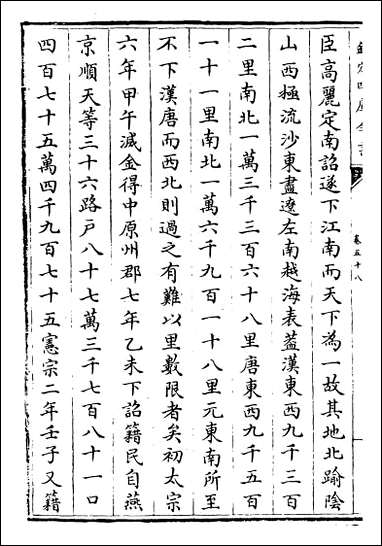 欽定四庫全書
卷五十八
臣高麗定南詔遂下江南而天下為一故其地北踰陰
山西極流沙東盡遼左南越海表葢漢東西九千三百
二里南北一萬三千三百六十八里唐東西九千五百
一十一里南北一萬六千九百一十八里元東南所至
不下漢唐而西北則過之有難以里數限者矣初太宗
六年甲午滅金得中原州郡七年乙未下詔籍民自燕
京順天等三十六路戸八十七萬三千七百八十一口
四百七十五萬四千九百七十五憲宗二年壬子又籍